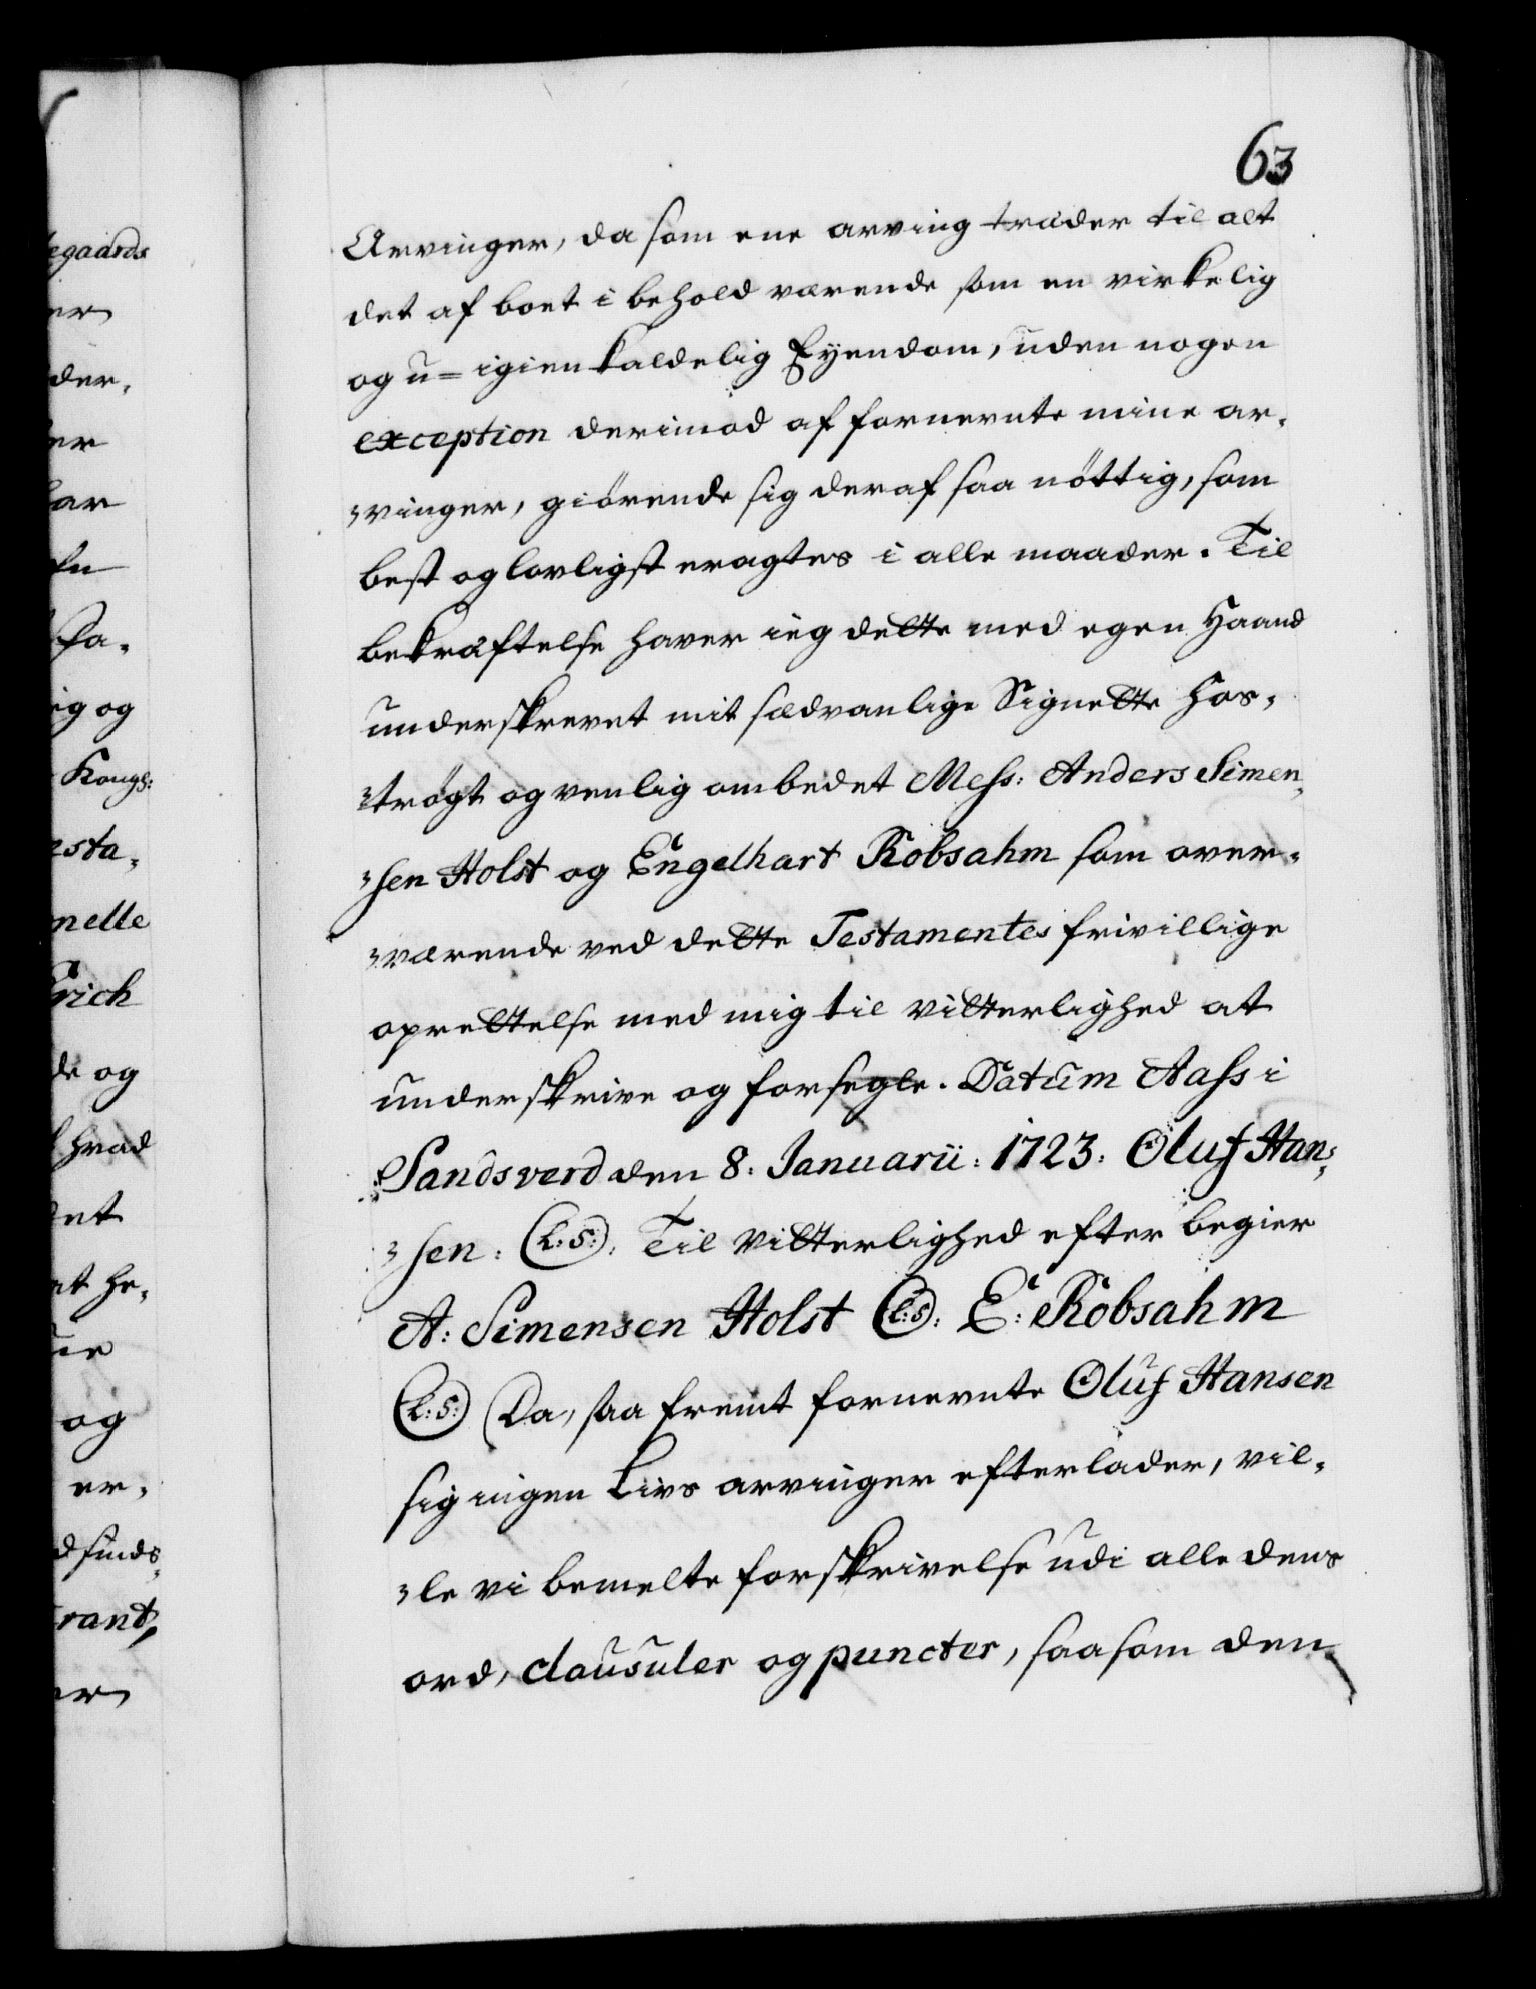 63
Arvinger, da som ene arving træder til alt
det af boet i behold værende som en virkelig
og u=igienkaldelig Eyendom, uden nogen
exception derimod af fornevnte mine ar,
,,vinger, giörende sig deraf saa nöttig, som
best og lovligst eragtes i alle maader. Til
bekræftelse haver ieg dette med egen Haand
underskrevet mit sædvanlige Signette hos,
,,trøgt og venlig ombedet Mess: Anders Simen,
,,sen Holst og Engelhart Robsahm som over,
,,værende ved dette Testamentes frivillige
oprettelse med mig til vitterlighed at
underskrive og forsegle. Datum Aass i
Sandsverd den 8: Januarii: 1723: Oluf Han,
,,sen: (L:S:): Til Vitterlighed efter begier
A: Simensen Holst (L:S): E: Robsahm
(L:S:) Da, saa fremt fornevnte Oluf Hansen
sig ingen Livs arvinger efterlader, vil,
,,le vi bemelte forskrivelse udi alle dens
ord, clausuler og puncter, saasom den
egaards
er
der,
er
ar
sa,
ig og
Kongl:
esta,
nelle
Erich
de og
hvad
det
nt he,
og
er,
rant,
er